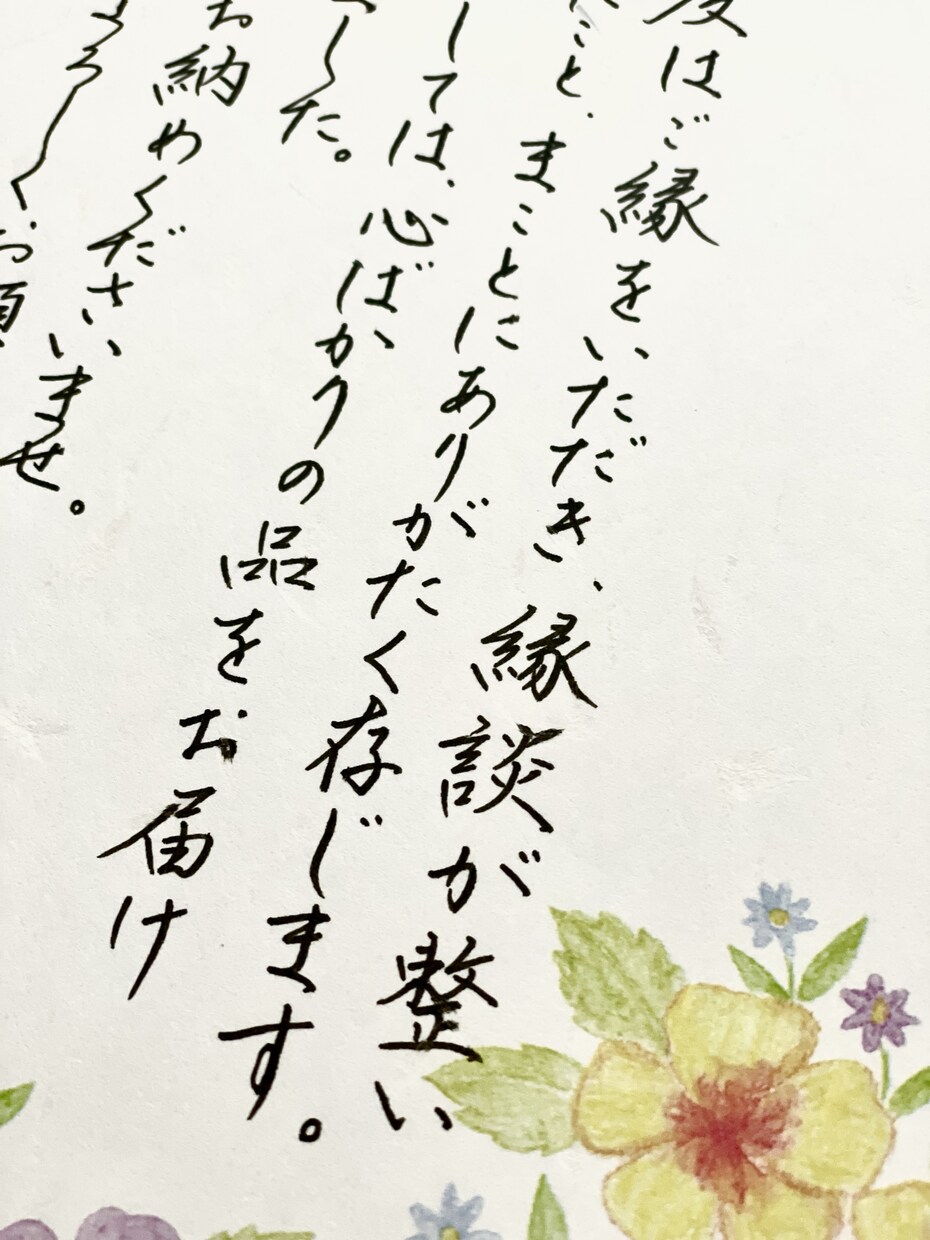 度はご縁をいただき、縁談が整い
こと、まことにありがたく存じます。
しては、心ばかりの品をお届け
した。
お納めくださいませ。
ろしくお願